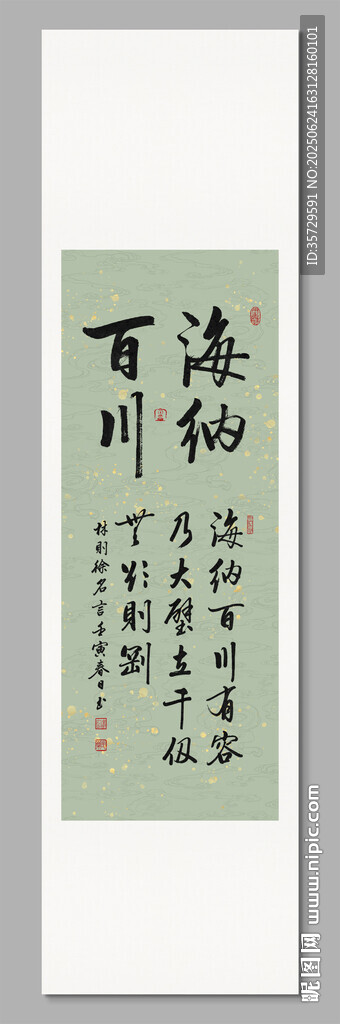 海纳
百川
海纳百川有容
乃大壁立千仞
无欲则刚
林则徐名言壬寅春日书
ID:35729591 NO:20250624163128160101
昵图网 www.nipic.com